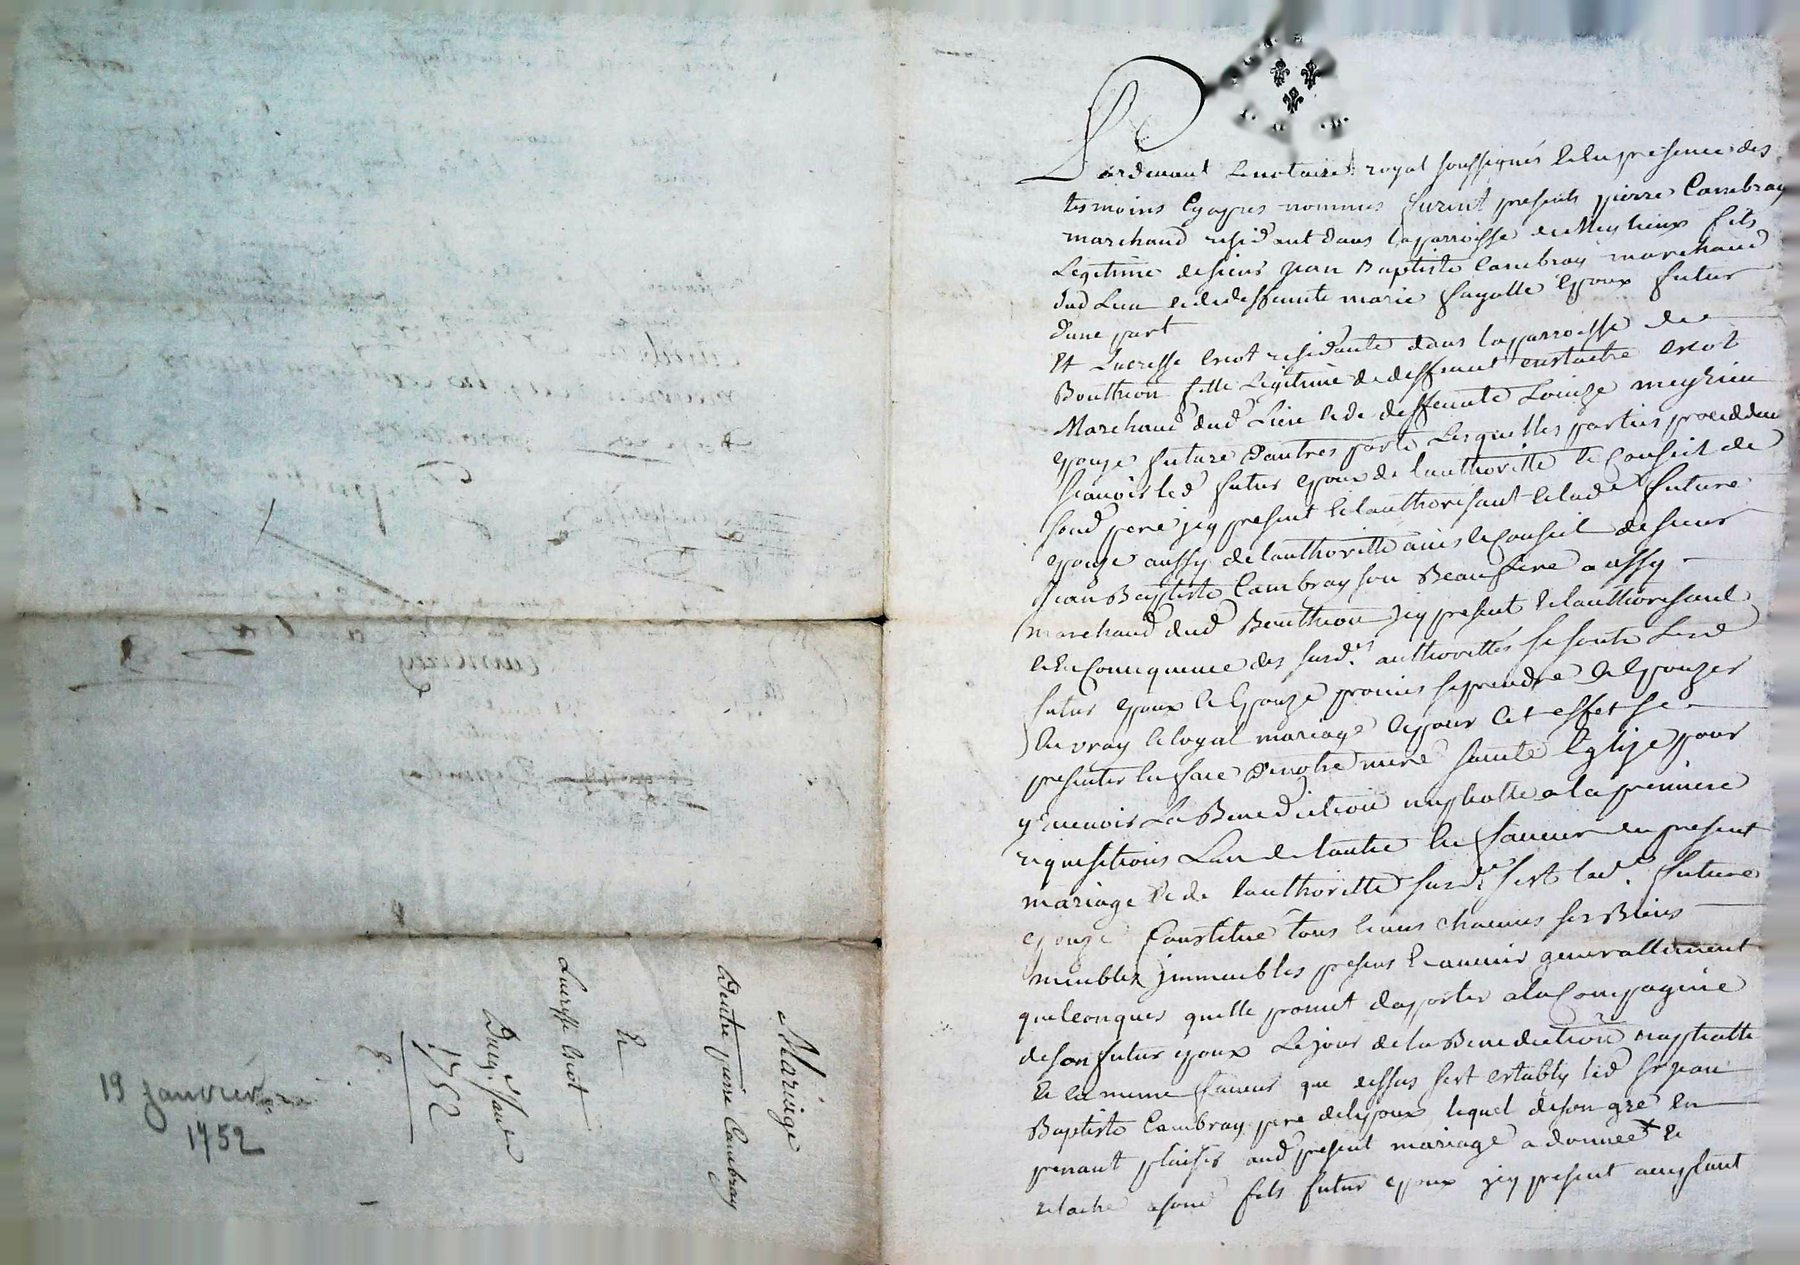 Mariage
Dentre pierre Cambray
Et
Lucresse Escot
Du 19 Janvier
1752
19 Janvier
1752
Pardevant Le notaire royal soussignés & en presence des
tesmoins cy apres nommes furent presents pierre Cambray
marchand residant dans la parroisse de Meylieux fils
Legitime de sieur jean Baptiste Cambray marchand
dud Lieu & de deffunte marie fayolle Epoux futur
dune part
Et Lucresse Escot residante dans la parroisse de
Bouthion fille Legitime de deffunt eustache Escot
Marchand dud Lieu & de deffunte Louize meyrieu
epouze future dautres part Lesquelles parties procedant
scavoir led futur epoux de lauthoritté & Conseil de
sond pere jcy present & lauthorisant & lad future
epouze aussy de lauthoritté avis & Conseil de sieur
jean Baptiste Cambray son Beaufrere aussy
marchand dud Bouthion jcy present & lauthorisant
& En Consequence des susd. authorittés se sont Lesd
futur epoux & Epouze promis se prendre & Epouzer
En vray & loyal mariage & pour Cet effet se
presenter En face de notre mere sainte Eglize pour
y recevoir La Benediction nuptialle a la premiere
requisitions Lun de lautre En faveur du present
mariage & de lauthoritté susd. sest lad. future
epouze Constitué tous & uns chacuns ses Biens
meubles jmmeubles presens & avenir generallement
quelconques quelle promet daporter a la Compagnie
de son futur epoux Le jour de la Benediction nuptialle
& En meme faveur que dessus sest estably led Sr jean
Baptiste Cambray pere de lepoux lequel de son gre En
prenant plaisir aud present mariage a donnee &
relaché a sond fils futur epoux jcy present aceptant